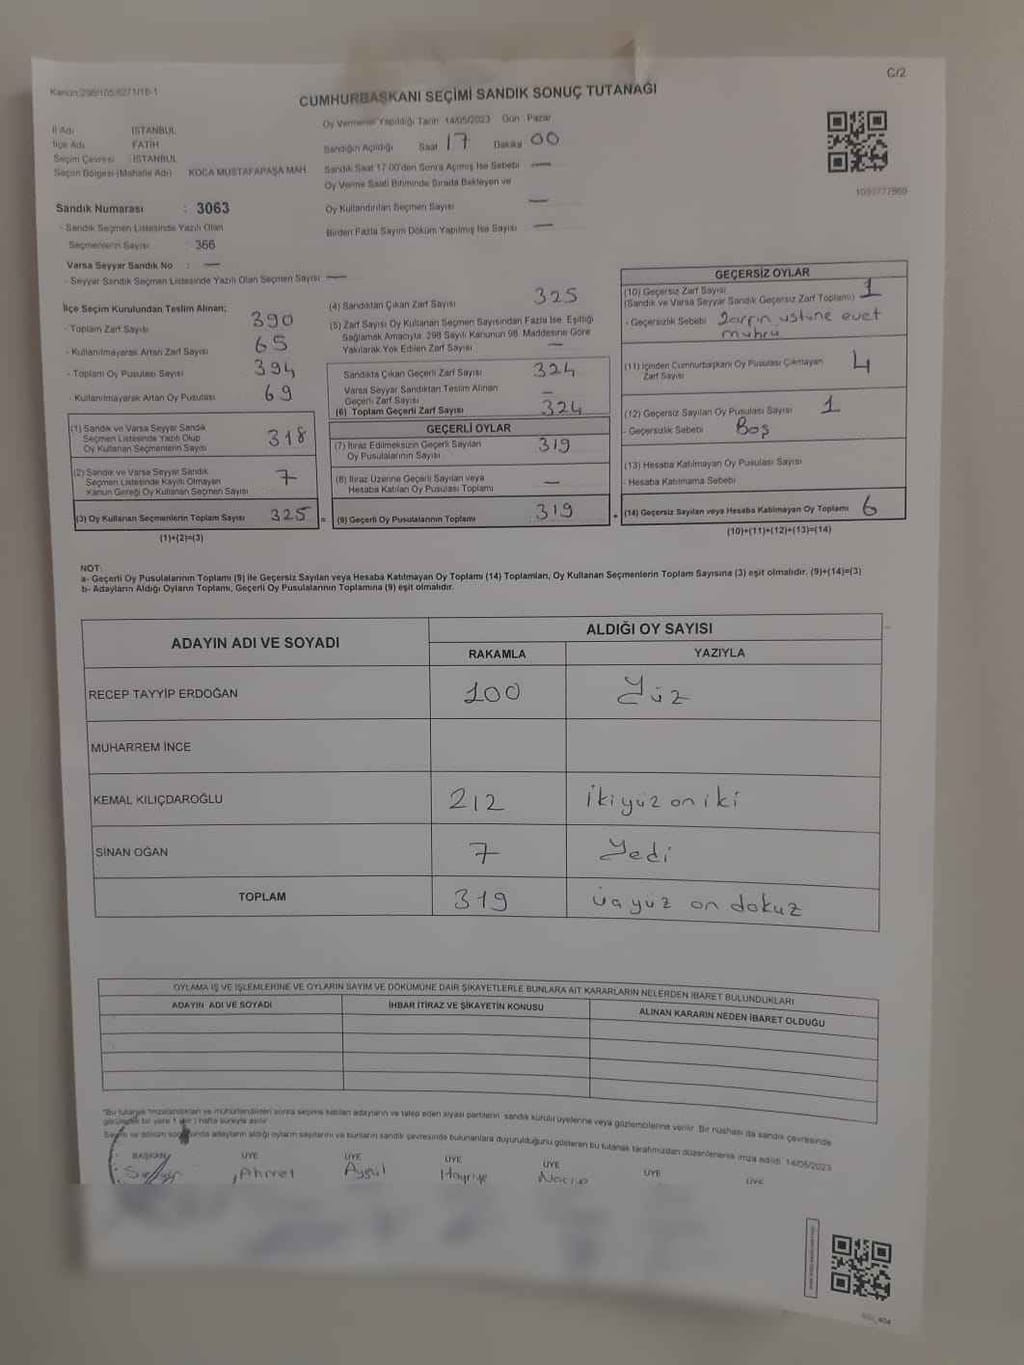 Kanun:298/105,6271/18-1
C/2
CUMHURBAŞKANI SEÇİMİ SANDIK SONUÇ TUTANAĞI
İl Adı : İSTANBUL
İlçe Adı : FATİH
Seçim Çevresi : İSTANBUL
Seçim Bölgesi (Mahalle Adı) KOCA MUSTAFAPAŞA MAH.
Oy Vermenin Yapıldığı Tarih 14/05/2023 Gün : Pazar
Sandığın Açıldığı Saat 17 Dakika 00
Sandık Saat 17:00'den Sonra Açılmış İse Sebebi —
Oy Verme Saati Bitiminde Sırada Bekleyen ve
Oy Kullandırılan Seçmen Sayısı —
Birden Fazla Sayım Döküm Yapılmış İse Sayısı —
Sandık Numarası : 3063
- Sandık Seçmen Listesinde Yazılı Olan
Seçmenlerin Sayısı : 366
Varsa Seyyar Sandık No : —
- Seyyar Sandık Seçmen Listesinde Yazılı Olan Seçmen Sayısı —
İlçe Seçim Kurulundan Teslim Alınan;
- Toplam Zarf Sayısı 390
- Kullanılmayarak Artan Zarf Sayısı 65
- Toplam Oy Pusulası Sayısı 394
- Kullanılmayarak Artan Oy Pusulası 69
(1) Sandık ve Varsa Seyyar Sandık
Seçmen Listesinde Yazılı Olup
Oy Kullanan Seçmenlerin Sayısı 318
(2) Sandık ve Varsa Seyyar Sandık
Seçmen Listesinde Kayıtlı Olmayan
Kanun Gereği Oy Kullanan Seçmen Sayısı 7
(3) Oy Kullanan Seçmenlerin Toplam Sayısı 325 =
(1)+(2)=(3)
(4) Sandıktan Çıkan Zarf Sayısı 325
(5) Zarf Sayısı Oy Kullanan Seçmen Sayısından Fazla İse Eşitliği
Sağlamak Amacıyla 298 Sayılı Kanunun 98. Maddesine Göre
Yakılarak Yok Edilen Zarf Sayısı —
Sandıkta Çıkan Geçerli Zarf Sayısı 324
Varsa Seyyar Sandıktan Teslim Alınan
Geçerli Zarf Sayısı —
(6) Toplam Geçerli Zarf Sayısı 324
GEÇERLİ OYLAR
(7) İtiraz Edilmeksizin Geçerli Sayılan
Oy Pusulalarının Sayısı 319
(8) İtiraz Üzerine Geçerli Sayılan veya
Hesaba Katılan Oy Pusulası Toplamı —
(9) Geçerli Oy Pusulalarının Toplamı 319 +
GEÇERSİZ OYLAR
(10) Geçersiz Zarf Sayısı 1
(Sandık ve Varsa Seyyar Sandık Geçersiz Zarf Toplamı)
- Geçersizlik Sebebi Zarfın üstüne evet
mührü
(11) İçinden Cumhurbaşkanı Oy Pusulası Çıkmayan 4
Zarf Sayısı
(12) Geçersiz Sayılan Oy Pusulası Sayısı 1
- Geçersizlik Sebebi Boş
(13) Hesaba Katılmayan Oy Pusulası Sayısı
- Hesaba Katılmama Sebebi
(14) Geçersiz Sayılan veya Hesaba Katılmayan Oy Toplamı 6
(10)+(11)+(12)+(13)=(14)
NOT:
a- Geçerli Oy Pusulalarının Toplamı (9) ile Geçersiz Sayılan veya Hesaba Katılmayan Oy Toplamı (14) Toplamları, Oy Kullanan Seçmenlerin Toplam Sayısına (3) eşit olmalıdır. (9)+(14)=(3)
b- Adayların Aldığı Oyların Toplamı, Geçerli Oy Pusulalarının Toplamına (9) eşit olmalıdır.
ADAYIN ADI VE SOYADI ALDIĞI OY SAYISI
RAKAMLA YAZIYLA
RECEP TAYYİP ERDOĞAN 100 Yüz
MUHARREM İNCE
KEMAL KILIÇDAROĞLU 212 İkiyüz on iki
SİNAN OĞAN 7 Yedi
TOPLAM 319 üçyüz on dokuz
OYLAMA İŞ VE İŞLEMLERİNE VE OYLARIN SAYIM VE DÖKÜMÜNE DAİR ŞİKAYETLERLE BUNLARA AİT KARARLARIN NELERDEN İBARET BULUNDUKLARI
ADAYIN ADI VE SOYADI İHBAR İTİRAZ VE ŞİKAYETİN KONUSU ALINAN KARARIN NEDEN İBARET OLDUĞU
"Bu tutanak imzalandıktan ve mühürlendikten sonra seçime katılan adayların ve talep eden siyasi partilerin sandık kurulu üyelerine veya gözlemcilerine verilir. Bir nüshası da sandık çevresinde
görünebilir bir yere 1 (bir) hafta süreyle asılır
Seçim ve döküm sonucunda adayların aldığı oyların sayılarını ve bunların sandık çevresinde bulunanlara duyurulduğunu gösteren bu tutanak tarafımızdan düzenlenerek imza edildi. 14/05/2023
BAŞKAN ÜYE ÜYE ÜYE ÜYE ÜYE ÜYE
Ahmet Aygül Hayriye